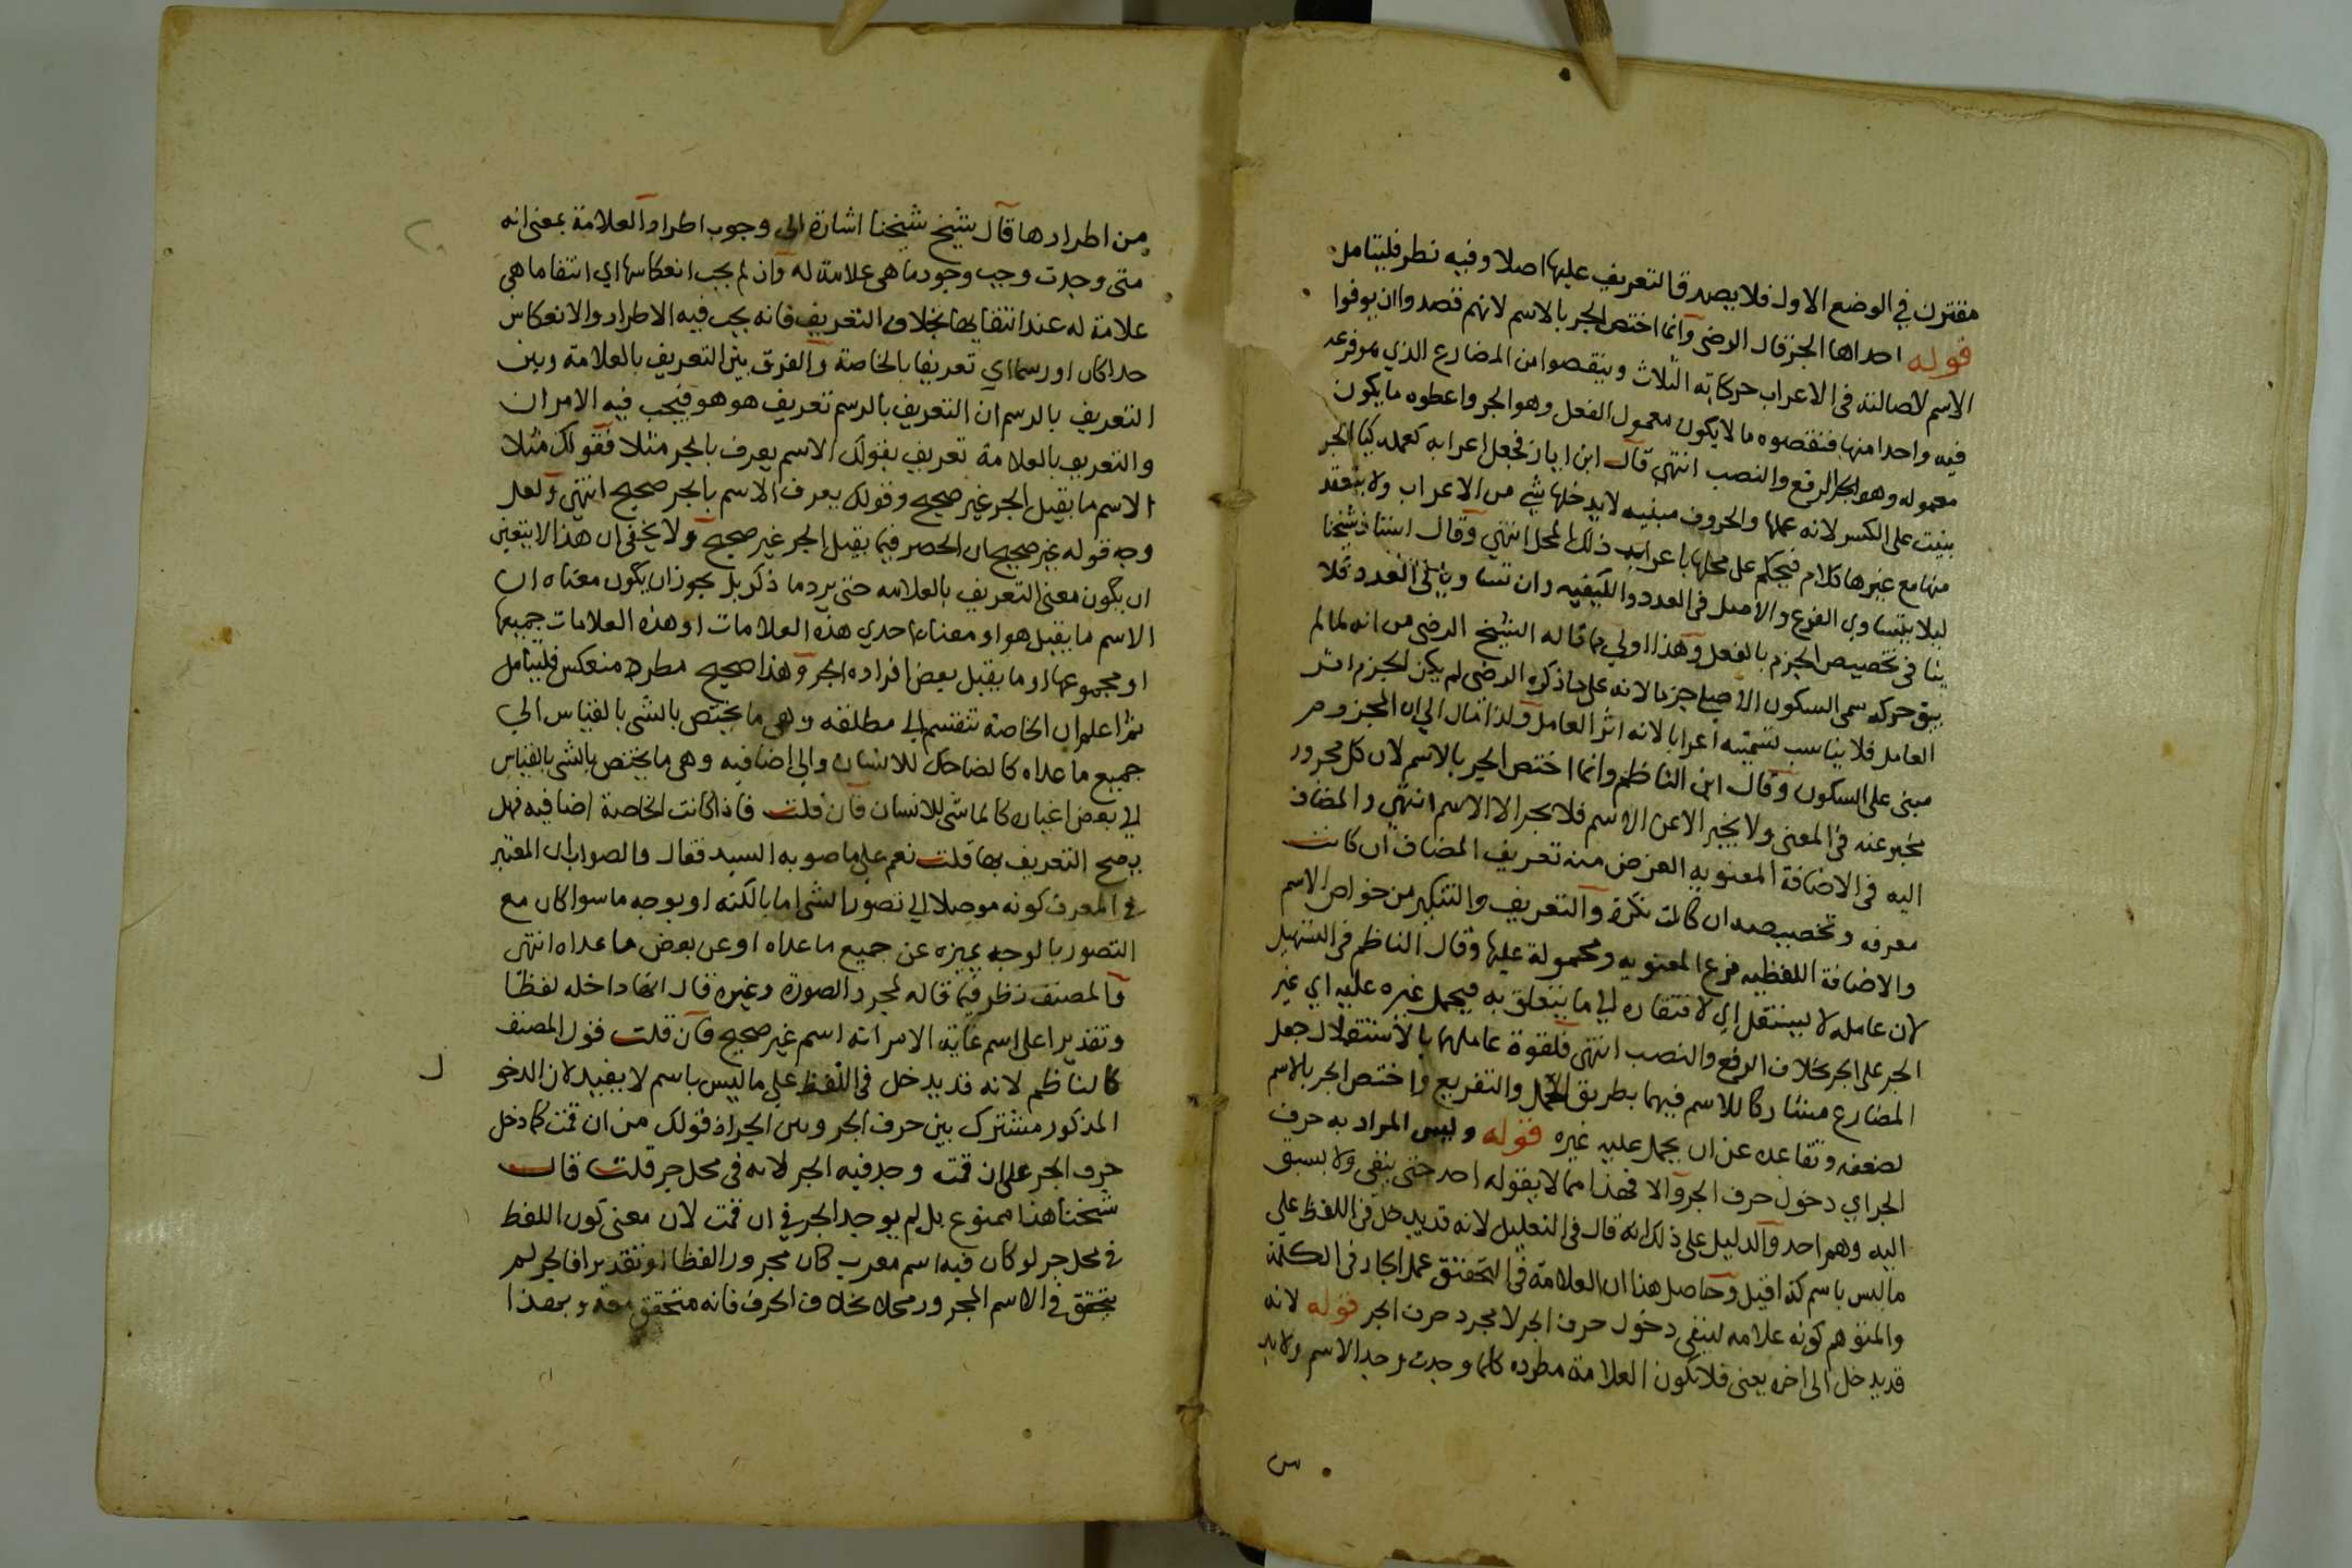 مقترن في الوضع الاول فلا يصدق التعريف عليها اصلا وفيه نظر فليتامل
قوله احداها الجر قال الرضى وانما اختص الجر بالاسم لانهم قصدوا ان يوفوا
الاسم لاصالته في الاعراب حركاته الثلاث وينقصوا من المضارع الذي هو فرعه
فيه واحدا منها فنقصوه ما لا يكون معمول الفعل وهو الجر واعطوه ما يكون
معموله وهو الرفع والنصب انتهى قال ابن اياز فجعل اعرابه كعمله كبا الجر
بنيت على الكسر لانه عملها والحروف مبنيه لا يدخلها شي من الاعراب ولا ينعقد
منها مع غيرها كلام فيحكم على محلها باعراب ذلك المحل انتهى وقال استاذ شيخنا
ليلا يتساوى الفرع والاصل في العدد والكيفيه وان تساويا في العدد فلا
ينافي تخصيص الجزم بالفعل وهذا اولي مما قاله الشيخ الرضى من انه لما لم
يبق حركه سمى السكون الاصلي جزما لانه على ما ذكره الرضى لم يكن الجزم اثر
العامل فلا يناسب تسميته اعرابا لانه اثر العامل ولذا مال الي ان المجزوم
مبنى على السكون وقال ابن الناظم وانما اختص الجر بالاسم لان كل مجرور
مخبر عنه في المعنى ولا يخبر الا عن الاسم فلا يجر الا الاسم انتهى والمضاف
اليه في الاضافة المعنويه الغرض منه تعريف المضاف ان كانت
معرفه وتخصيصه ان كانت نكرة والتعريف والتنكير من خواص الاسم
والاضافة اللفظيه فرع المعنويه ومحمولة عليها وقال الناظم في التسهيل
لان عامله لا يستقل اي لافتقاره الي ما يتعلق به فيحمل غيره عليه اي غير
الجر على الجر بخلاف الرفع والنصب انتهى فلقوة عاملهما بالاستقلال جعل
المضارع مشاركا للاسم فيهما بطريق الحمل والتفريع واختص الجر بالاسم
لضعفه وتقاعده عن ان يحمل عليه غيره قوله وليس المراد به حرف
الجر اي دخول حرف الجر والا فهذا مما لا يقوله احد حتى ينفى ولا يسبق
اليه وهم احد والدليل على ذلك انه قال في التعليل لانه قد يدخل في اللفظ على
ما ليس باسم كذا قيل وحاصل هذا ان العلامة في التحقيق عمل الجار في الكلمة
والمتوهم كونه علامه لينفى دخول حرف الجر لا مجرد حرف الجر قوله لانه
قد يدخل الى اخره يعنى فلا تكون العلامة مطرده كلما وجدت وجد الاسم ولابد
من اطرادها قال شيخ شيخنا اشارة الى وجوب اطراد العلامة بمعنى انه
متى وجدت وجب وجود ما هى علامة له وان لم يجب انعكاسها اي انتفا ما هي
علامة له عند انتفايها بخلاف التعريف فانه يجب فيه الاطراد والانعكاس
حدا كان او رسما اي تعريفا بالخاصة والفرق بين التعريف بالعلامة وبين
التعريف بالرسم ان التعريف بالرسم تعريف هو هو فيجب فيه الامران
والتعريف بالعلامة تعريف بقولك الاسم يعرف بالجر مثلا فقولك مثلا
الاسم ما يقبل الجر غير صحيح وقولك يعرف الاسم بالجر صحيح انتهى ولعل
وجه قوله غير صحيح ان الحصر فيما يقبل الجر غير صحيح ولا يخفى ان هذا لا يتعين
ان يكون معنى التعريف بالعلامه حتى يرد ما ذكر بل يجوز ان يكون معناه ان
الاسم ما يقبل هو او معناه احدي هذه العلامات او هذه العلامات جميعها
او مجموعها او ما يقبل بعض افراده الجر وهذا صحيح مطرد منعكس فليتامل
ثم اعلم ان الخاصة تنقسم الي مطلقه وهى ما يختص بالشى بالقياس الي
جميع ما عداه كالضاحك للانسان والي اضافيه وهى ما يختص بالشى بالقياس
الي بعض اغياره كالماشى للانسان فان قلت فاذا كانت الخاصة اضافيه فهل
يصح التعريف بها قلت نعم على ما صوبه السيد فقال والصواب ان المعتبر
في المعرف كونه موصلا الي تصور الشى اما بالكنه او بوجه ما سوا كان مع
التصور بالوجه يميزه عن جميع ما عداه او عن بعض ما عداه انتهى
والمصنف نظر فيما قاله لمجرد الصورة وغيره قال انها داخله لفظا
وتقديرا على اسم غاية الامر انه اسم غير صحيح فان قلت قول المصنف
كالناظم لانه قد يدخل في اللفظ على ما ليس باسم لا يفيد لان الدخو
ل
المذكور مشترك بين حرف الجر وبين الجر اذ قولك من ان قمت كما دخل
حرف الجر على ان قمته وجد فيه الجر لانه في محل جر قلت قال
شيخنا هنا ممنوع بل لم يوجد الجر في ان قمت لان معنى كون اللفظ
في محل جر لو كان فيه اسم معرب كان مجرورا لفظا او تقديرا فالجر لم
يتحقق في الاسم المجرور محلا بخلاف الحرف فانه متحقق معه وبهذا